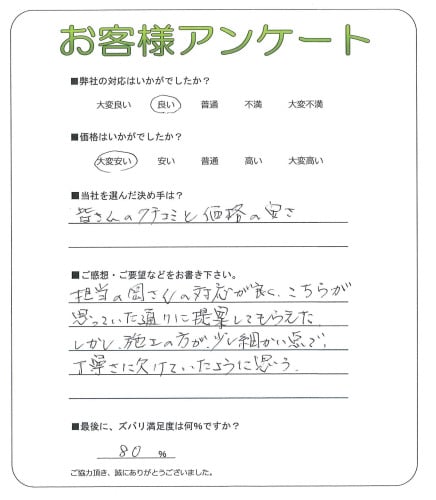 お客様アンケート
■弊社の対応はいかがでしたか？
大変良い 良い 普通 不満 大変不満
■価格はいかがでしたか？
大変安い 安い 普通 高い 大変高い
■当社を選んだ決め手は？
皆さんのクチコミと価格の安さ
■ご感想・ご要望などをお書き下さい。
担当の岡さんの対応が良く、こちらが
思っていた通りに提案してもらえた。
しかし、施工の方が、少し細かい点で、
丁寧さに欠けていたように思う。
■最後に、ズバリ満足度は何％ですか？
80 ％
ご協力頂き、誠にありがとうございました。